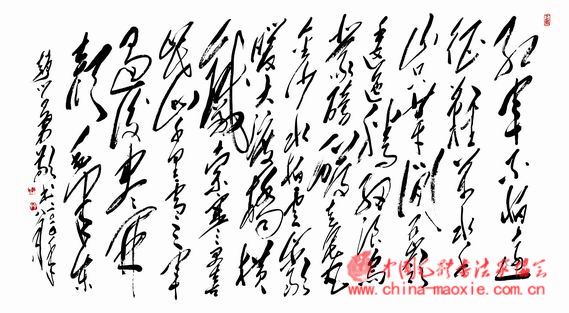 红军不怕远
征难万水千
山只等闲五岭
逶迤腾细浪乌
蒙磅礴走泥丸
金沙水拍云崖
暖大渡桥横
铁索寒更喜
岷山千里雪三军
过后尽开
颜毛泽东
www.china-maoxie.com.cn